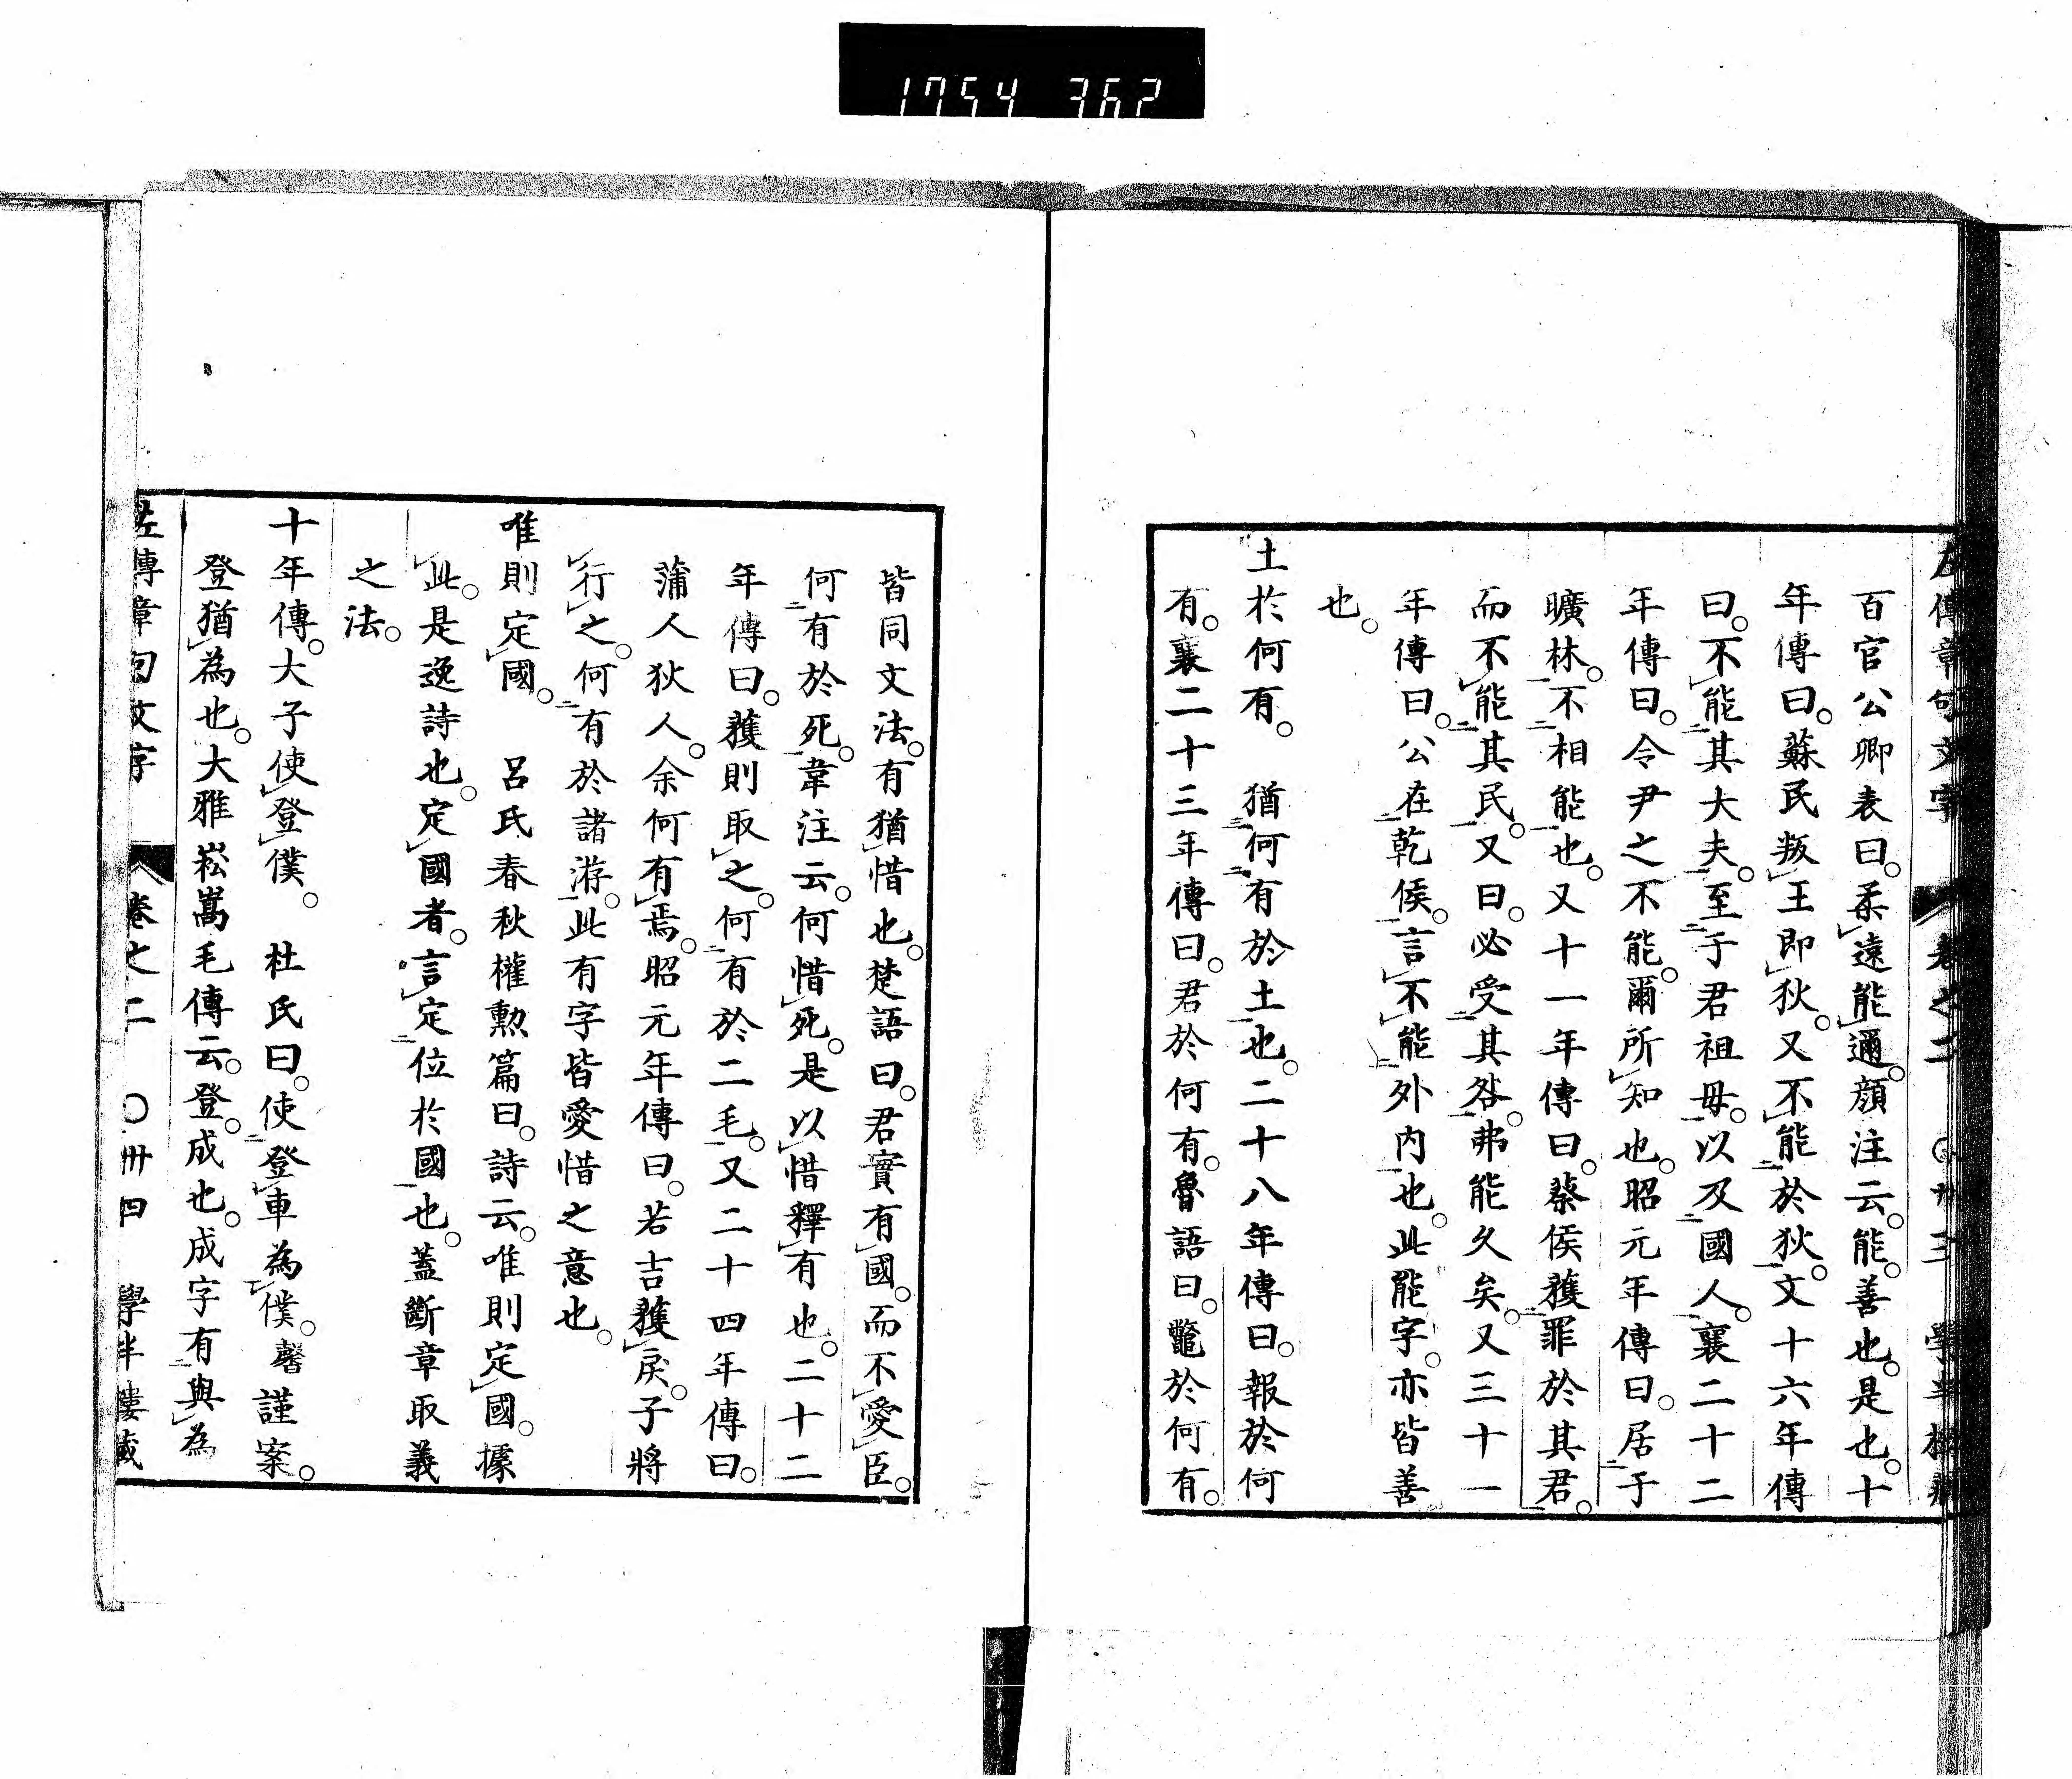 1754 362
左傳章句文字 卷之二 ○卅三 學半
百官公卿表曰。柔遠能邇。顏注云。能。善也。是也。十
年傳曰。蘇氏叛王即狄。又不能於狄。文十六年傳
曰。不能其大夫。至于君祖毋。以及國人。襄二十二
年傳曰。令尹之不能。爾所知也。昭元年傳曰。居于
曠林。不相能也。又十一年傳曰。蔡侯獲罪於其君。
而不能其民。又曰。必受其咎。弗能久矣。又三十一
年傳曰。公在乾侯。言不能外内也。此能字。亦皆善
也。
土於何有。 猶何有於土也。二十八年傳曰。報於何
有。襄二十三年傳曰。君於何有。魯語曰。鼈於何有。
皆同文法。有猶惜也。楚語曰。君實有國。而不愛臣。
何有於死。韋注云。何惜死。是以惜釋有也。二十二
年傳曰。獲則取之。何有於二毛。又二十四年傳曰。
蒲人狄人。余何有焉。昭元年傳曰。若吉獲戾。子將
行之。何有於諸游。此有字皆愛惜之意也。
唯則定國。 呂氏春秋權勲篇曰。詩云。唯則定國。據
此。是逸詩也。定國者。言定位於國也。蓋斷章取義
之法。
十年傳。大子使登僕。 杜氏曰。使登車為僕。馨謹案。
登猶為也。大雅崧嵩毛傳云。登。成也。成字有與為
左傳章句文字 卷之二 ○卅四 學半樓藏